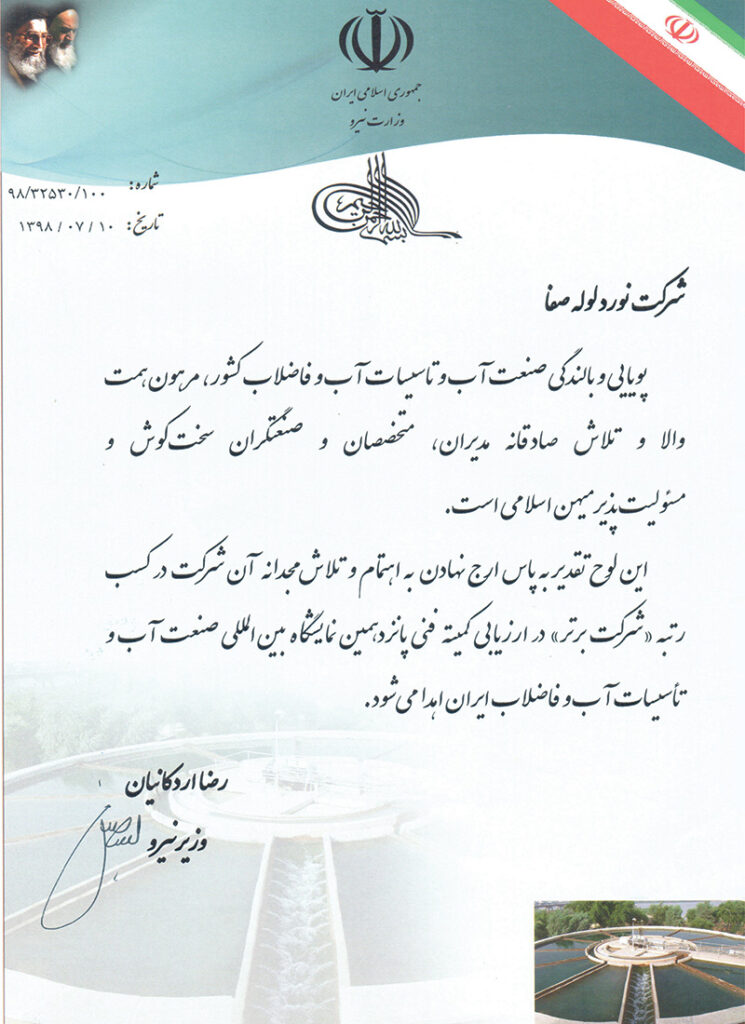 جمهوری اسلامی ایران
وزارت نیرو
بسم الله الرحمن الرحیم
شماره: ۹۸/۳۲۵۳۰/۱۰۰
تاریخ: ۱۳۹۸/۰۷/۱۰
شرکت نورد لوله صفا
پویایی و بالندگی صنعت آب و تاسیسات آب و فاضلاب کشور، مرهون همت
والا و تلاش صادقانه مدیران، متخصصان و صنعتگران سخت‌کوش و
مسئولیت‌پذیر میهن اسلامی است.
این لوح تقدیر به پاس ارج نهادن به اهتمام و تلاش مجدانه آن شرکت در کسب
رتبه «شرکت برتر» در ارزیابی کمیته فنی پانزدهمین نمایشگاه بین‌المللی صنعت آب و
تأسیسات آب و فاضلاب ایران اهدا می‌شود.
رضا اردکانیان
وزیر نیرو